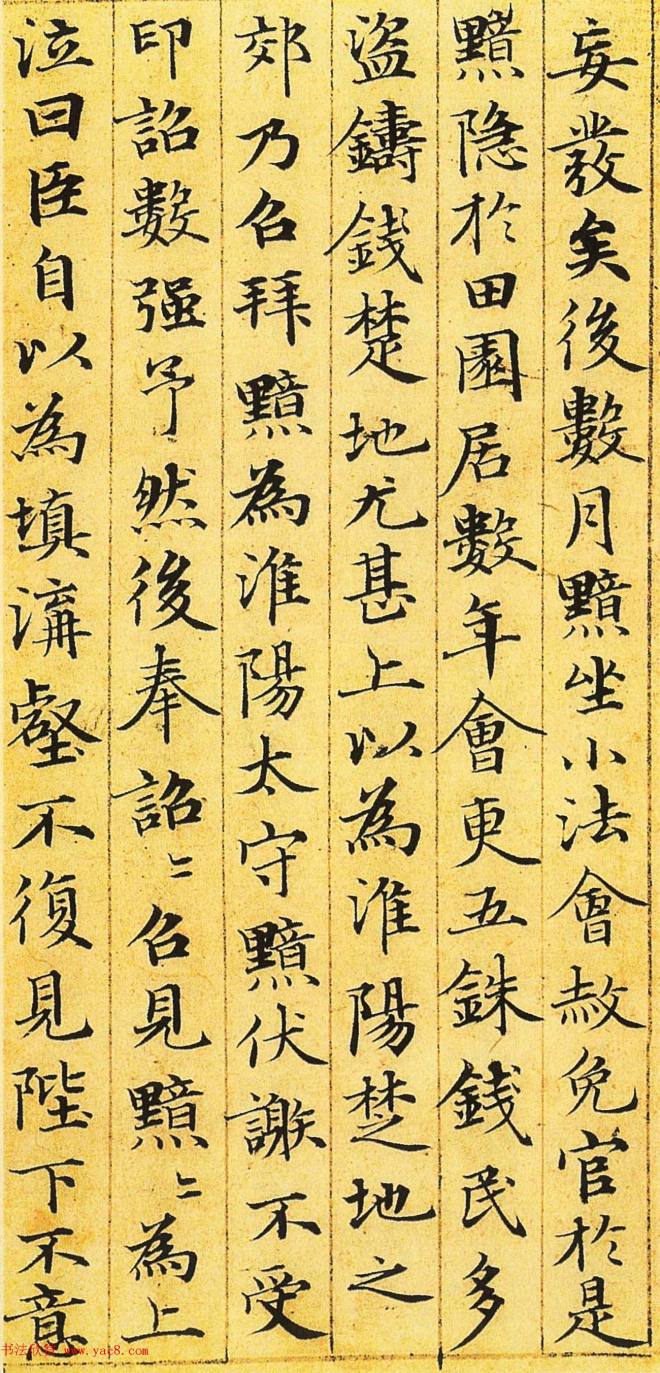 妄發矣後數月黯坐小法會赦免官於是
黯隐於田園居數年會更五銖錢民多
盜鑄錢楚地尤甚上以為淮陽楚地之
郊乃召拜黯為淮陽太守黯伏謝不受
印詔數强予然後奉詔〻召見黯〻為上
泣曰臣自以為填溝壑不復見陛下不意
书法欣赏 www.yac8.com